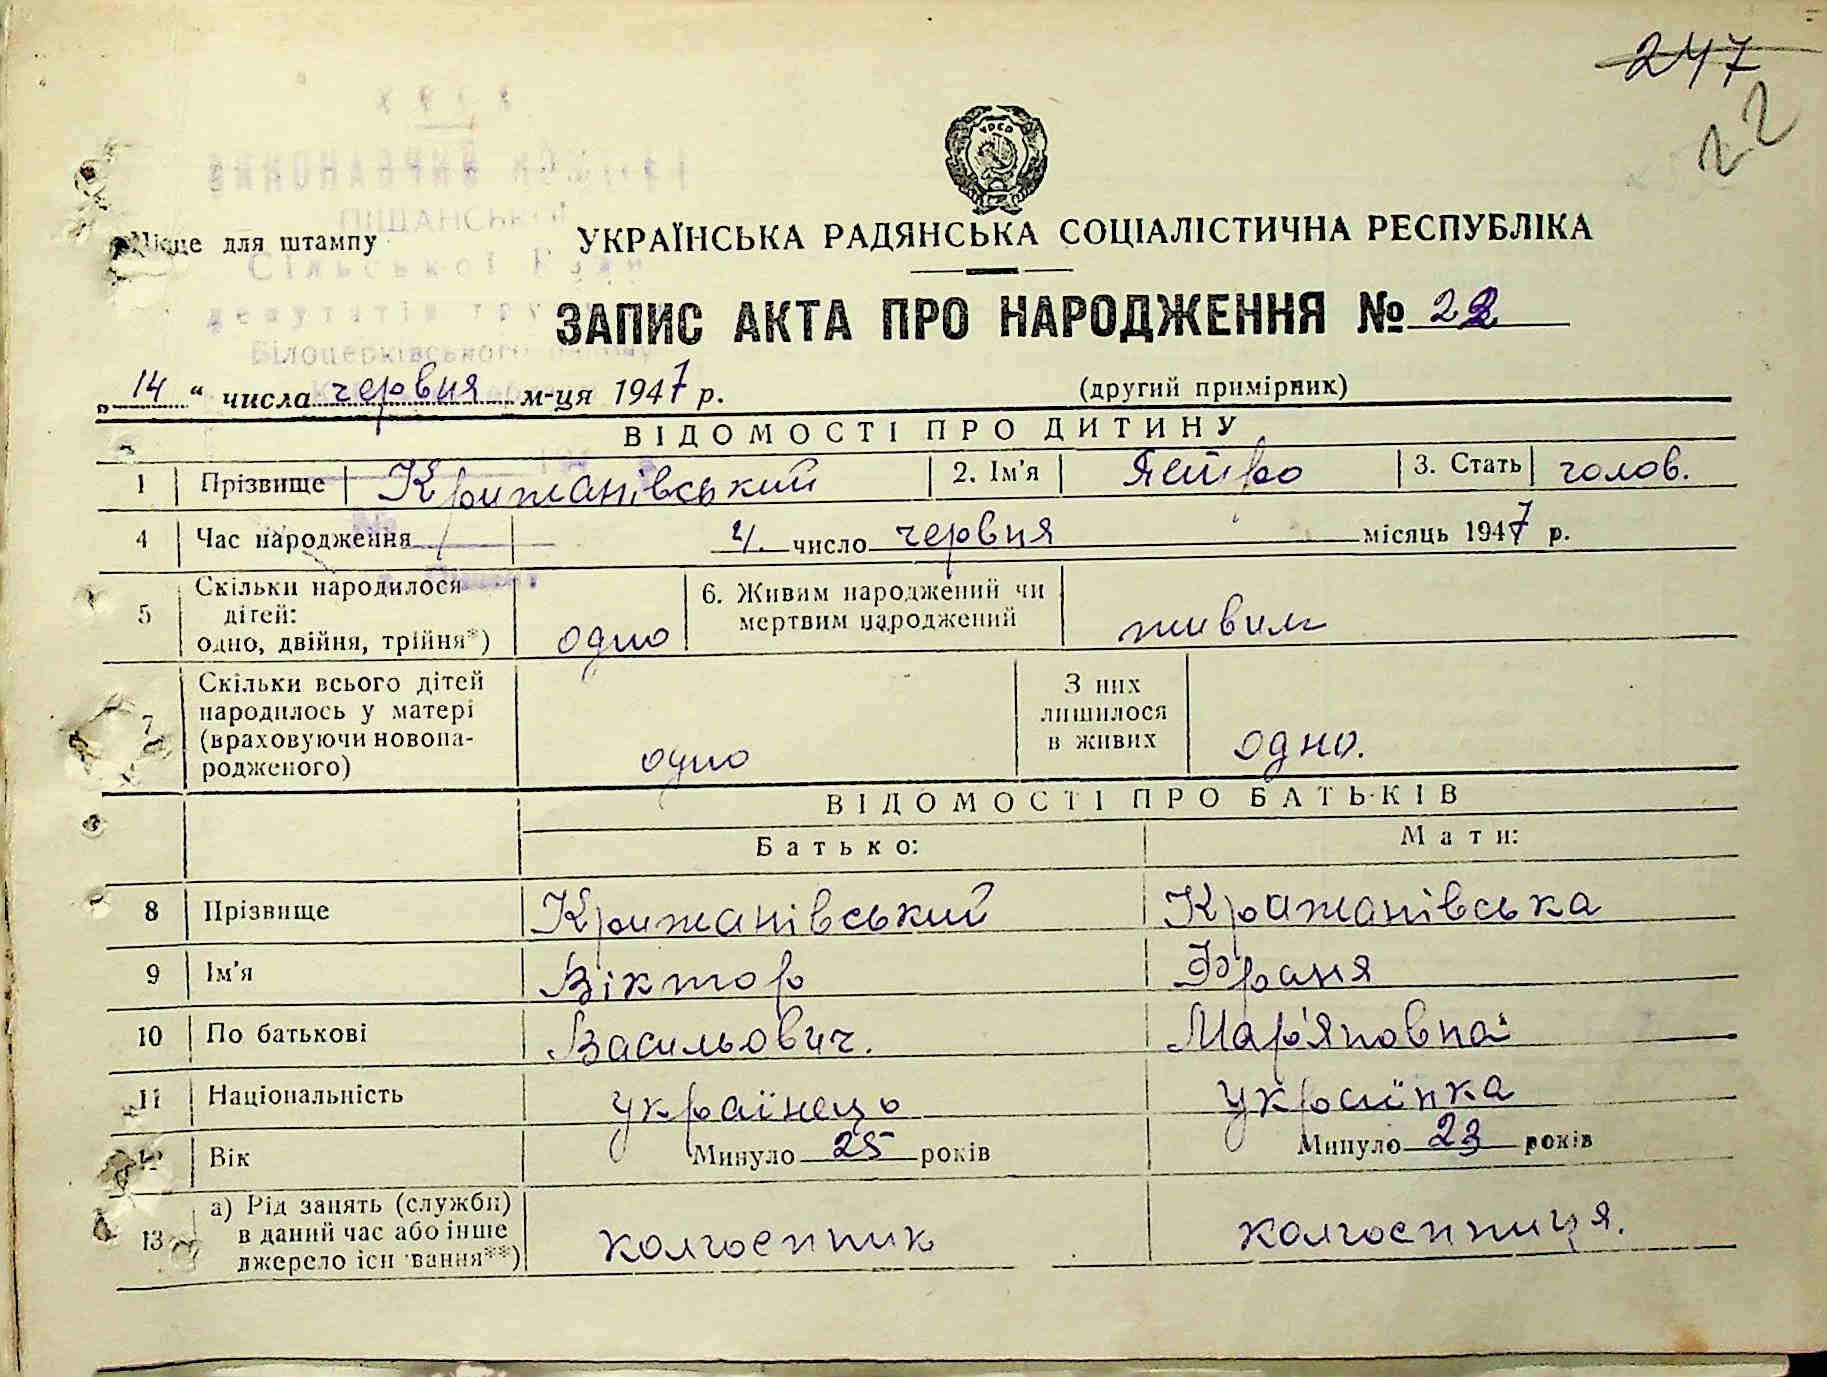 247
22
УРСР
ВИКОНАВЧИЙ
ПИЩАНСЬКОЇ
Сільської Ради
депутатів
Білоцерківського
Місце для штампу
УКРАЇНСЬКА РАДЯНСЬКА СОЦІАЛІСТИЧНА РЕСПУБЛІКА
ЗАПИС АКТА ПРО НАРОДЖЕННЯ № 22
„ 14 “ числа червня м-ця 1947 р. (другий примірник)
ВІДОМОСТІ ПРО ДИТИНУ
1 Прізвище Крижанівський 2. Ім'я Петро 3. Стать чолов.
4 Час народження 4. число червня місяць 1947 р.
5 Скільки народилося дітей: одно, двійня, трійня*) одно 6. Живим народжений чи мертвим народжений живим
7 Скільки всього дітей народилось у матері (враховуючи новонародженого) одно З них лишилося в живих одно.
ВІДОМОСТІ ПРО БАТЬКІВ
Батько: Мати:
8 Прізвище Крижанівський Крижанівська
9 Ім'я Віктор Франя
10 По батькові Васильович. Мар'яновна
11 Національність українець українка
12 Вік Минуло 25 років Минуло 23 років
13 а) Рід занять (служби) в даний час або інше джерело існування**) колгоспник колгоспниця.